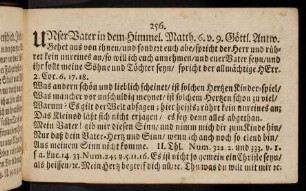 256.
UNser Vater in dem Himmel. Matth. 6. v. 9. Göttl. Antw.
Gehet aus von ihnen/ und sondert euch abe/ spricht der Herr und rüh-
ret kein unreines an/ so will ich euch annehmen/ und euer Vater seyn/ und
ihr sollt meine Söhne und Töchter seyn/ spricht der allmächtige HErr.
2. Cor. 6. 17. 18.
Was andern schön und lieblich scheinet/ ist solchen Hertzen Kinder-spiel/
Was mancher vor unschuldig meynet/ ist solchem Hertzen schon zu viel/
Warum? Es gilt der Welt absagen/ hier heists: rührt kein unreines an;
Das Kleinod läßt sich nicht erjagen/ es sey denn alles abgethan.
Mein Vater! gib mir diesen Sinn/ und nimm mich gantz und gar hin/
Nur daß dein Vater-Hertz und Sinn/ wenn ich auch noch so elend bin/
Aus meinem nicht komme. II. Thl. Num. 322. 2. und 333. v. 1.
4. Luc. 14. 33. Num. 243. v. 5. 11. 16. Es ist nicht so gemein ein Christe seyn/
als heissen/ ꝛc. Mein Hertz begehrt dich